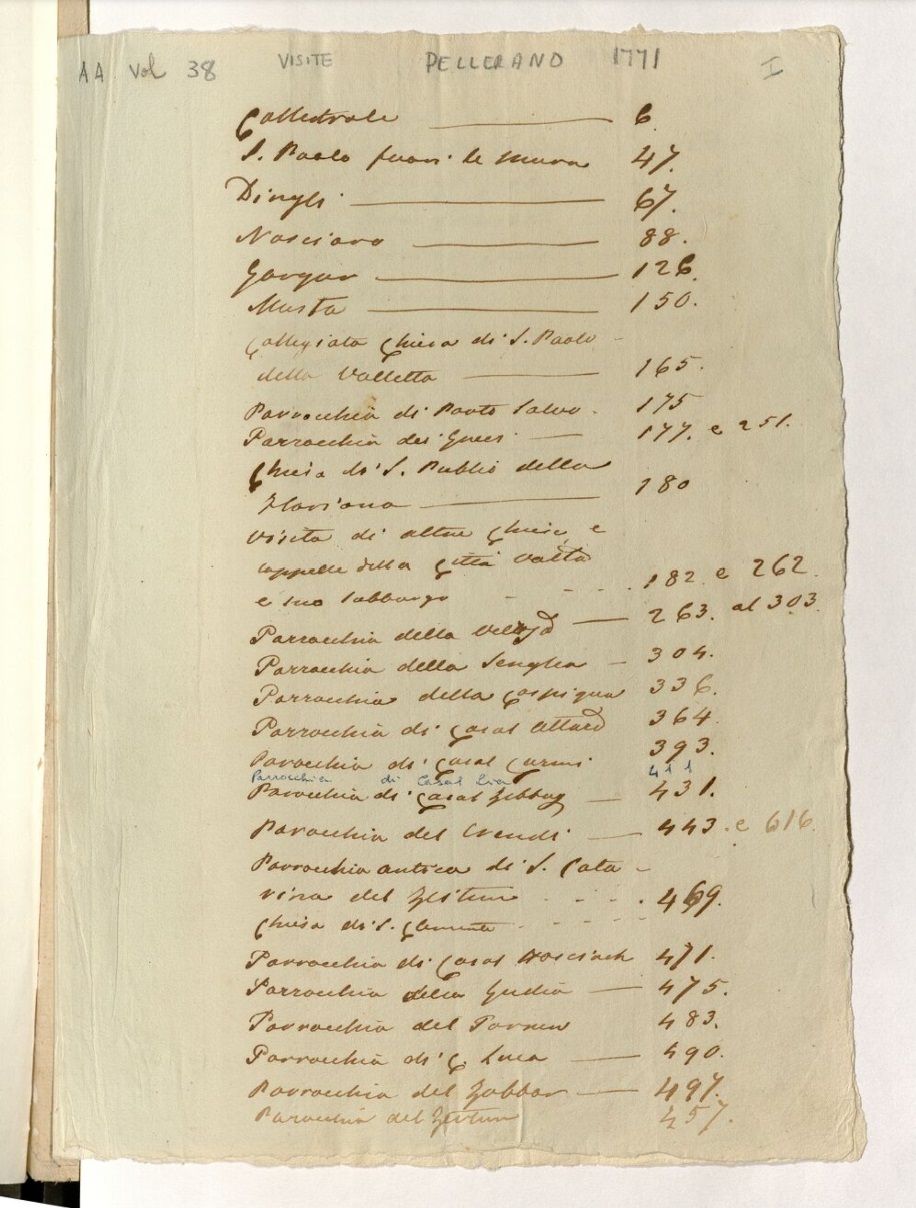 AA Vol 38 VISITE PELLERANO 1771 I
Cattedrale 6
S. Paolo fuori le mura 47.
Dingli 67.
Nasciaro 88.
Gargur 126.
Musta 150.
Collegiata Chiesa di S. Paolo
della Valletta 165.
Parrochia di Porto Salvo. 175
Parrochia dei Greci 177. e 251.
Chiesa di S. Publio della
Floriana 180
Visita di altre Chiese, e
cappelle della Città Valtta
e suo Subborgo 182. e 262.
Parrochia della 263. al 303.
Parrochia della Senglea 304.
Parrochia della Cospiqua 336.
Parrochia di Casal Attard 364.
Parochia di Casal Curmi 393.
Parrochia di Casal Lia 411
Parochia di Casal Zebbug 431.
Parochia del Crendi 443. e 616.
Parrochia antica di S. Cata-
rina del Zeitun 469.
Chiesa di S. Clemente
Parrochia di Casal 471.
Parrochia della Gudia 475.
Parrochia del Tarxien 483.
Parrochia di C. Luca 490.
Parrochia del Zabbar 497.
Parochia del Zeitun 457.